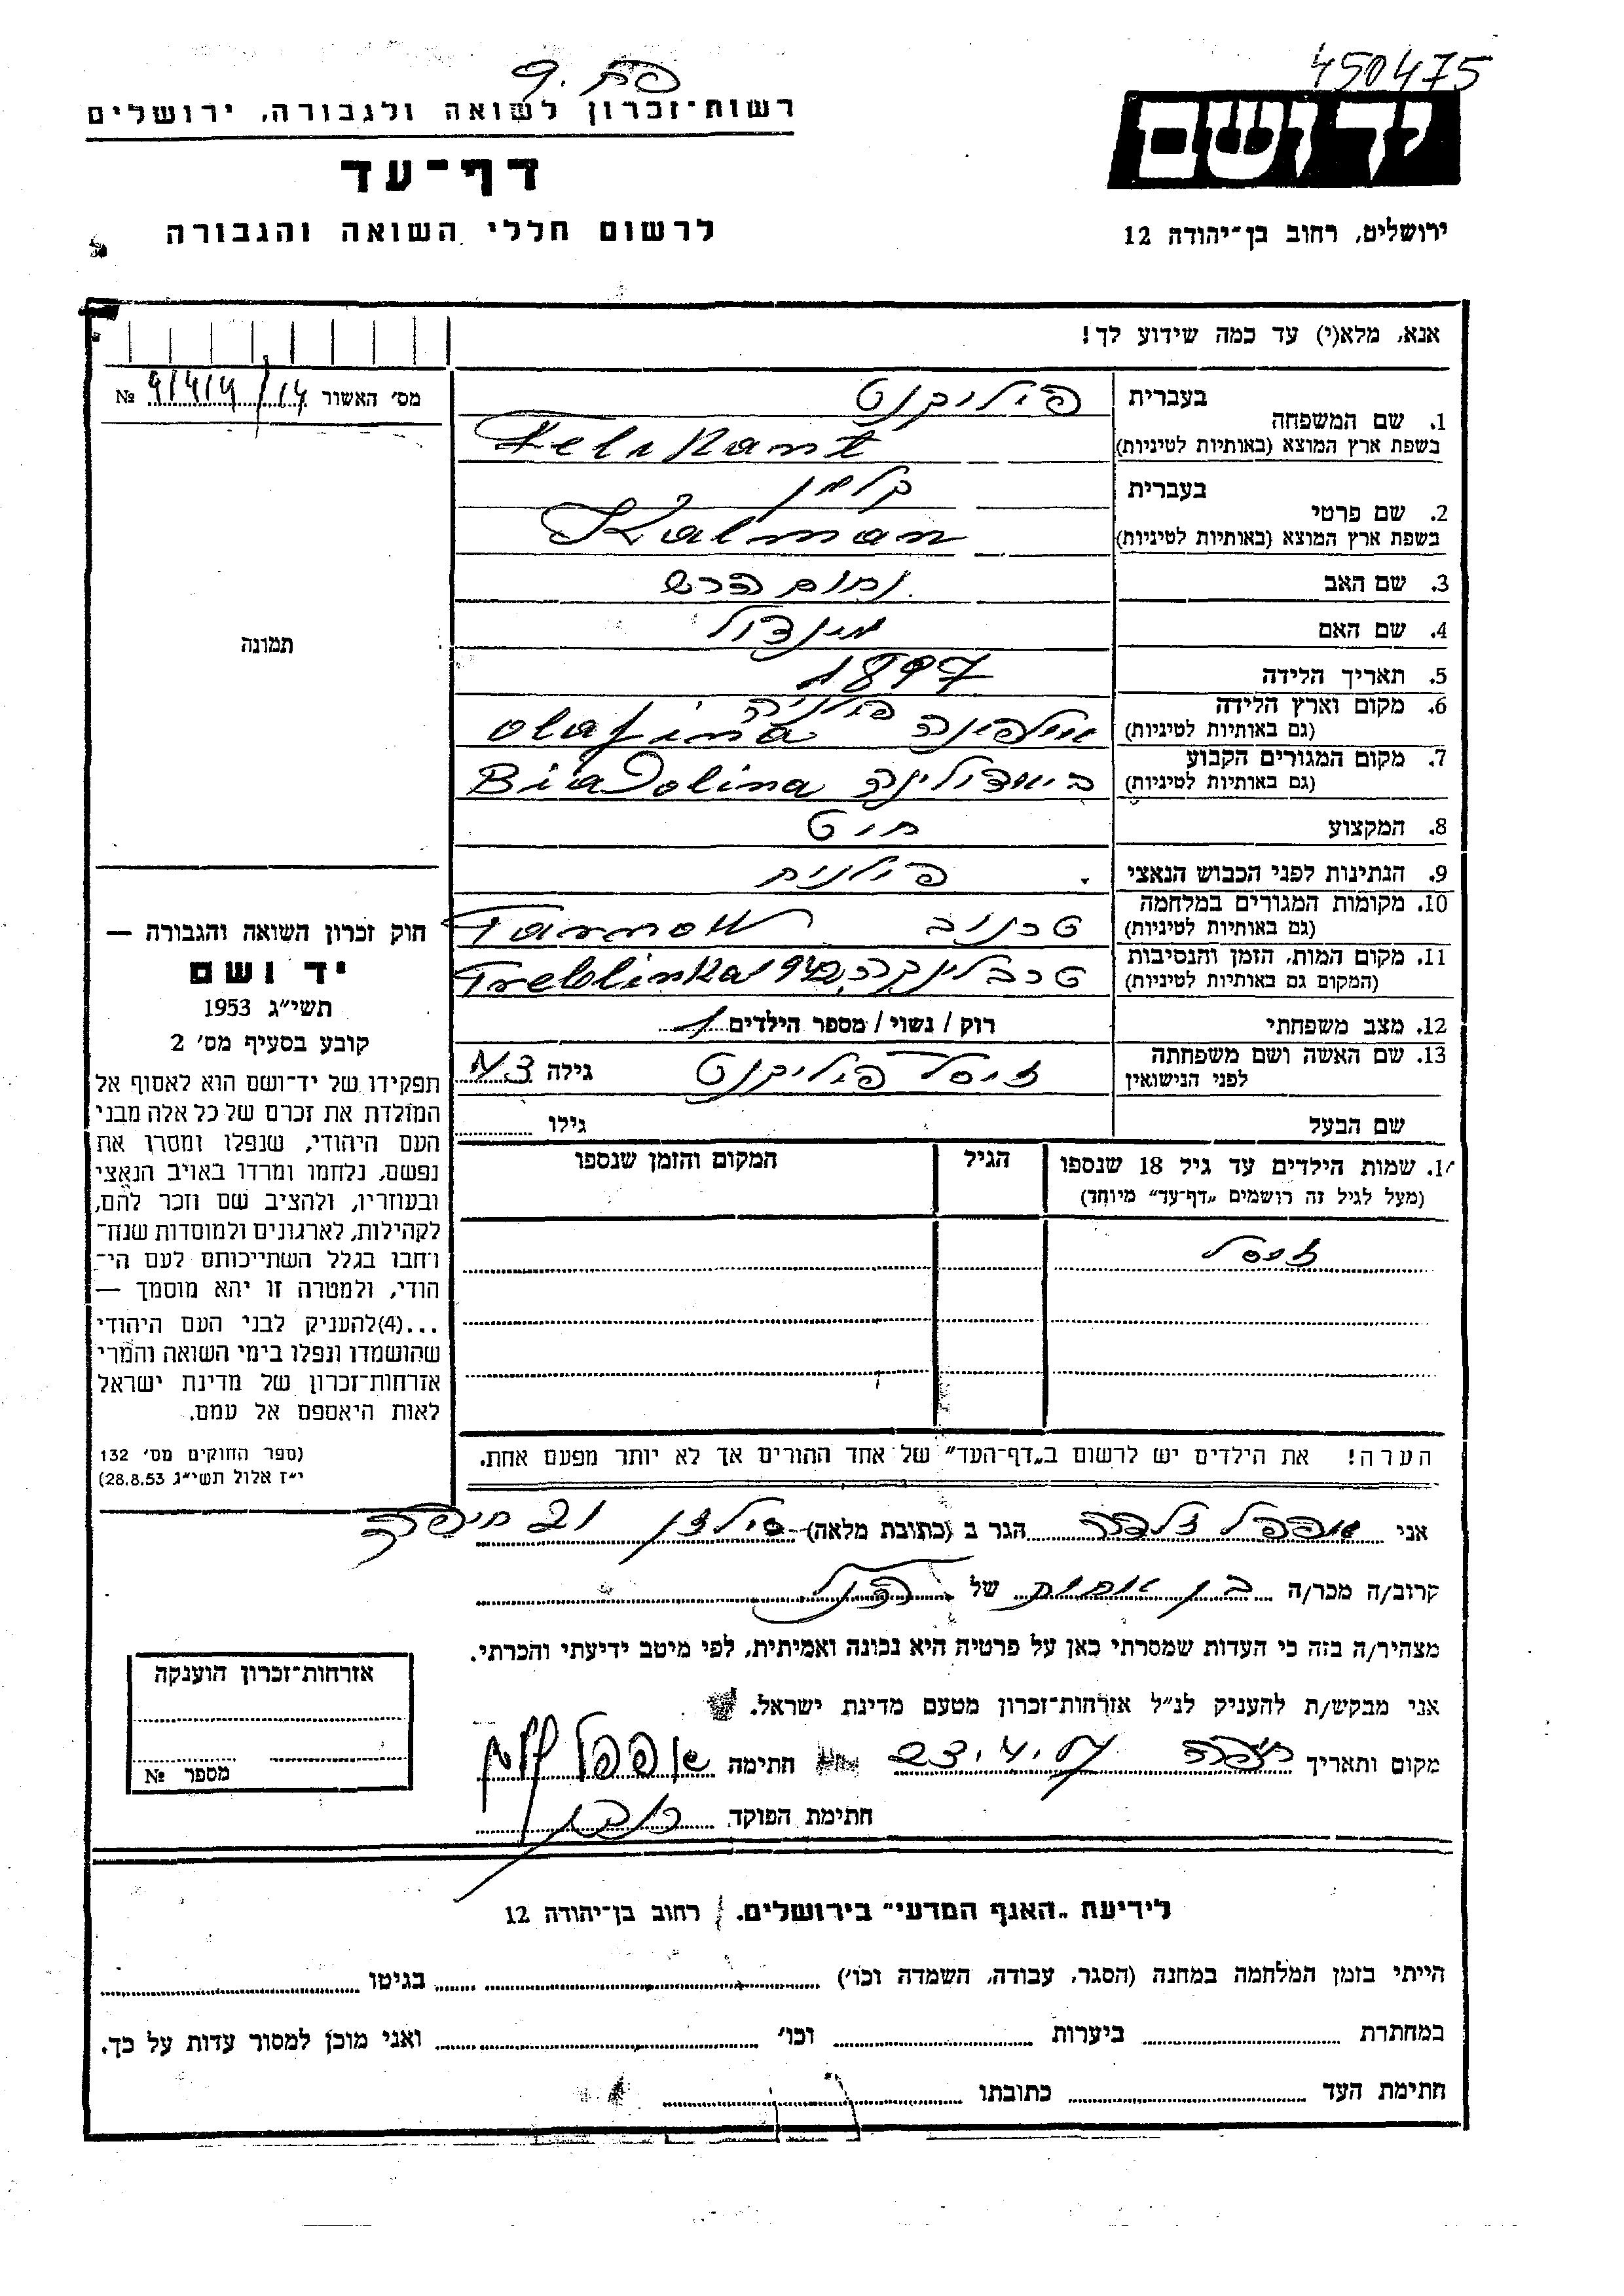 450475
רשות־זכרון לשואה ולגבורה, ירושלים
יד ושם
דף־עד
לרשום חללי השואה והגבורה
ירושלים, רחוב בן־יהודה 12
אנא, מלא(י) עד כמה שידוע לך!
מס׳ האשור №
1. שם המשפחה
בעברית
בשפת ארץ המוצא (באותיות לטיניות)
פיליקנט
Felikant
2. שם פרטי
בעברית
בשפת ארץ המוצא (באותיות לטיניות)
קלמן
Kalman
3. שם האב נחום הרש
4. שם האם מינדל
5. תאריך הלידה 1897
6. מקום וארץ הלידה
(גם באותיות לטיניות)
פולניה
אולפינה olafina
7. מקום המגורים הקבוע
(גם באותיות לטיניות)
ביאדולינה Biadolina
8. המקצוע
9. הנתינות לפני הכבוש הנאצי פולנית
10. מקומות המגורים במלחמה
(גם באותיות לטיניות)
טרנוב Tarnow
11. מקום המות, הזמן והנסיבות
(המקום גם באותיות לטיניות)
טרבלינקה Treblinka 1942
12. מצב משפחתי רוק / נשוי / מספר הילדים 1
13. שם האשה ושם משפחתה
לפני הנישואין
זיסל פיליקנט גילה
שם הבעל גילו
14. שמות הילדים עד גיל 18 שנספו
(מעל לגיל זה רושמים „דף־עד״ מיוחד)
הגיל
המקום והזמן שנספו
זיסל
הערה! את הילדים יש לרשום ב„דף־העד״ של אחד ההורים אך לא יותר מפעם אחת.
תמונה
חוק זכרון השואה והגבורה —
יד ושם
תשי״ג 1953
קובע בסעיף מס׳ 2
תפקידו של יד־ושם הוא לאסוף אל
המולדת את זכרם של כל אלה מבני
העם היהודי, שנפלו ומסרו את
נפשם, נלחמו ומרדו באויב הנאצי
ובעוזריו, ולהציב שם וזכר להם,
לקהילות, לארגונים ולמוסדות שנח־
רבו בגלל השתייכותם לעם הי־
הודי, ולמטרה זו יהא מוסמך —
...(4)להעניק לבני העם היהודי
שהושמדו ונפלו בימי השואה והמרי
אזרחות־זכרון של מדינת ישראל
לאות היאספם אל עמם.
(ספר החוקים מס׳ 132
י״ז אלול תשי״ג 28.8.53)
אני אפפל הגר ב (כתובת מלאה) 21 חיפה
קרוב/ה מכר/ה בן אחות של הנ״ל
מצהיר/ה בזה כי העדות שמסרתי כאן על פרטיה היא נכונה ואמיתית, לפי מיטב ידיעתי והכרתי.
אני מבקש/ת להעניק לנ״ל אזרחות־זכרון מטעם מדינת ישראל.
מקום ותאריך חיפה 23.4.57 חתימה אפפל
חתימת הפוקד
אזרחות־זכרון הוענקה
מספר №
לידיעת „האגף המדעי״ בירושלים, רחוב בן־יהודה 12
הייתי בזמן המלחמה במחנה (הסגר, עבודה, השמדה וכו׳) בגיטו
במחתרת ביערות וכו׳ ואני מוכן למסור עדות על כך.
חתימת העד כתובתו